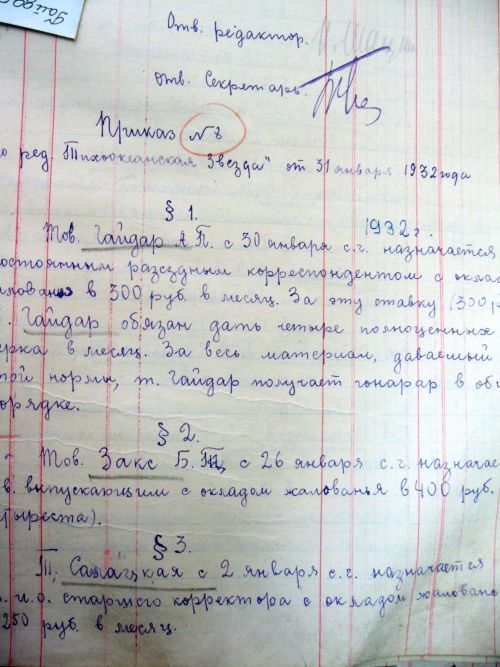 Гайдар
Отв. редактор.
отв. Секретарь.
Приказ № 8
по ред. "Тихоокеанская Звезда" от 31 января 1932 года
§ 1. 1932 г.
Тов. Гайдар А.П. с 30 января с.г. назначается
постоянным разъездным корреспондентом с оклад
жалования в 300 руб. в месяц. За эту ставку (300 р
. Гайдар обязан дать четыре полноценных
ерка в месяц. За весь материал, даваемый
той нормы, т. Гайдар получает гонарар в об
орядке.
§ 2.
Тов. Закс Б. с 26 января с.г. назначае
в. выпускающим с окладом жалованья в 400 руб.
(тыреста).
§ 3.
Т. с 2 января с.г. назначается
и.о. старшего корректора с окладом жалованья
250 руб. в месяц.